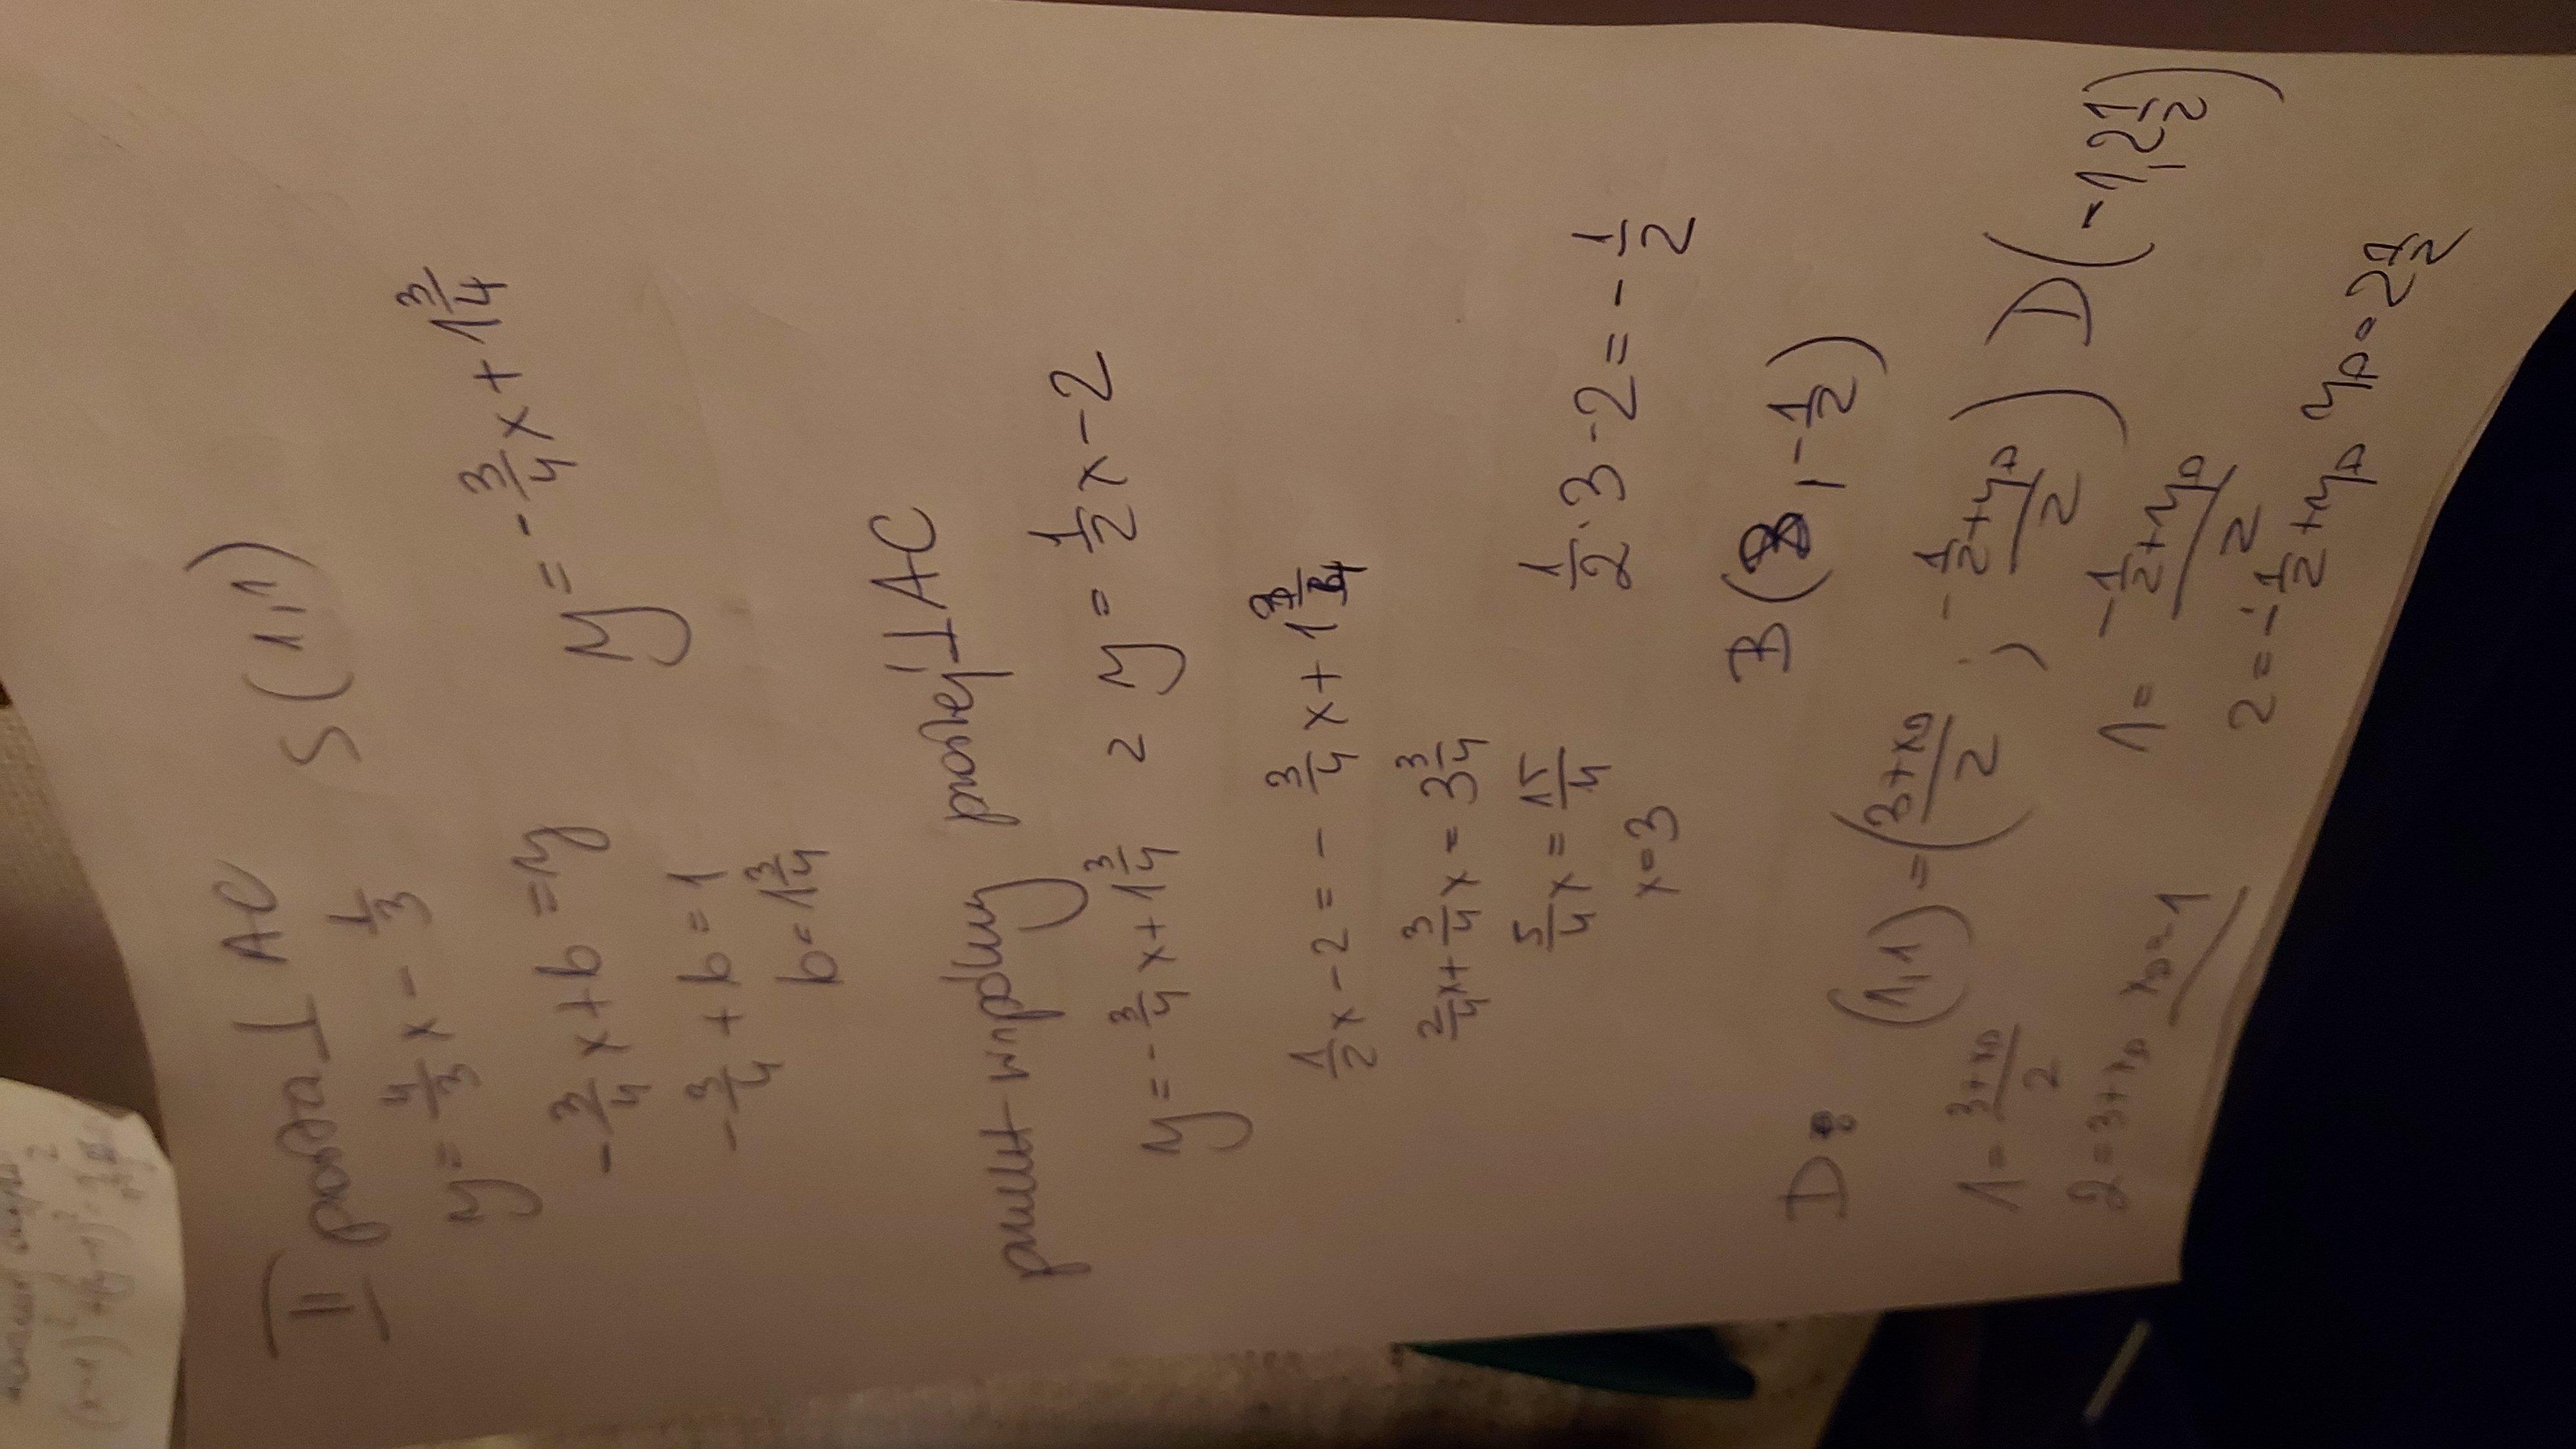 II prosta ⊥ AC S(1,1)
y = 4/3 x - 1/3
-3/4 x + b = y y = -3/4 x + 1 3/4
-3/4 + b = 1
b = 1 3/4
punkt wspólny prostej ⊥ AC
y = -3/4 x + 1 3/4 z y = 1/2 x - 2
1/2 x - 2 = -3/4 x + 1 3/4
2/4 x + 3/4 x = 3 3/4
5/4 x = 15/4
x = 3 1/2 · 3 - 2 = -1/2
B(3, -1/2)
D: (1,1) = (3+x_D/2 ; -1/2+y_D/2) D(-1, 2 1/2)
1 = 3+x_D/2 1 = -1/2+y_D/2
2 = 3+x_D x_D = -1 2 = -1/2+y_D y_D = 2 1/2